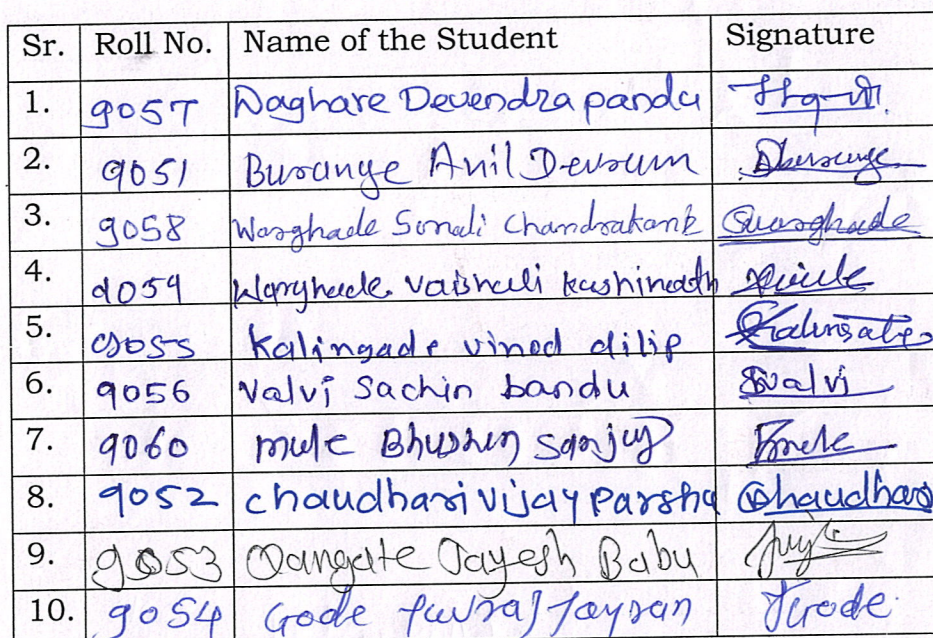 Sr. Roll No. Name of the Student Signature
1. 9057 Daghare Devendra pandu
2. 9051 Burange Anil Devram Aburange
3. 9058 Warghade Sonali Chandrakant Swarghade
4. 9059 Warghade vaishali kashinath
5. 9055 Kalingade vinod dilip
6. 9056 Valvi Sachin bandu Svalvi
7. 9060 mule Bhushan Sanjay Bmule
8. 9052 chaudhari vijay Parshu Chaudhari
9. 9053 Dangate Jayesh Babu
10. 9054 Gode Yuvraj Jayran